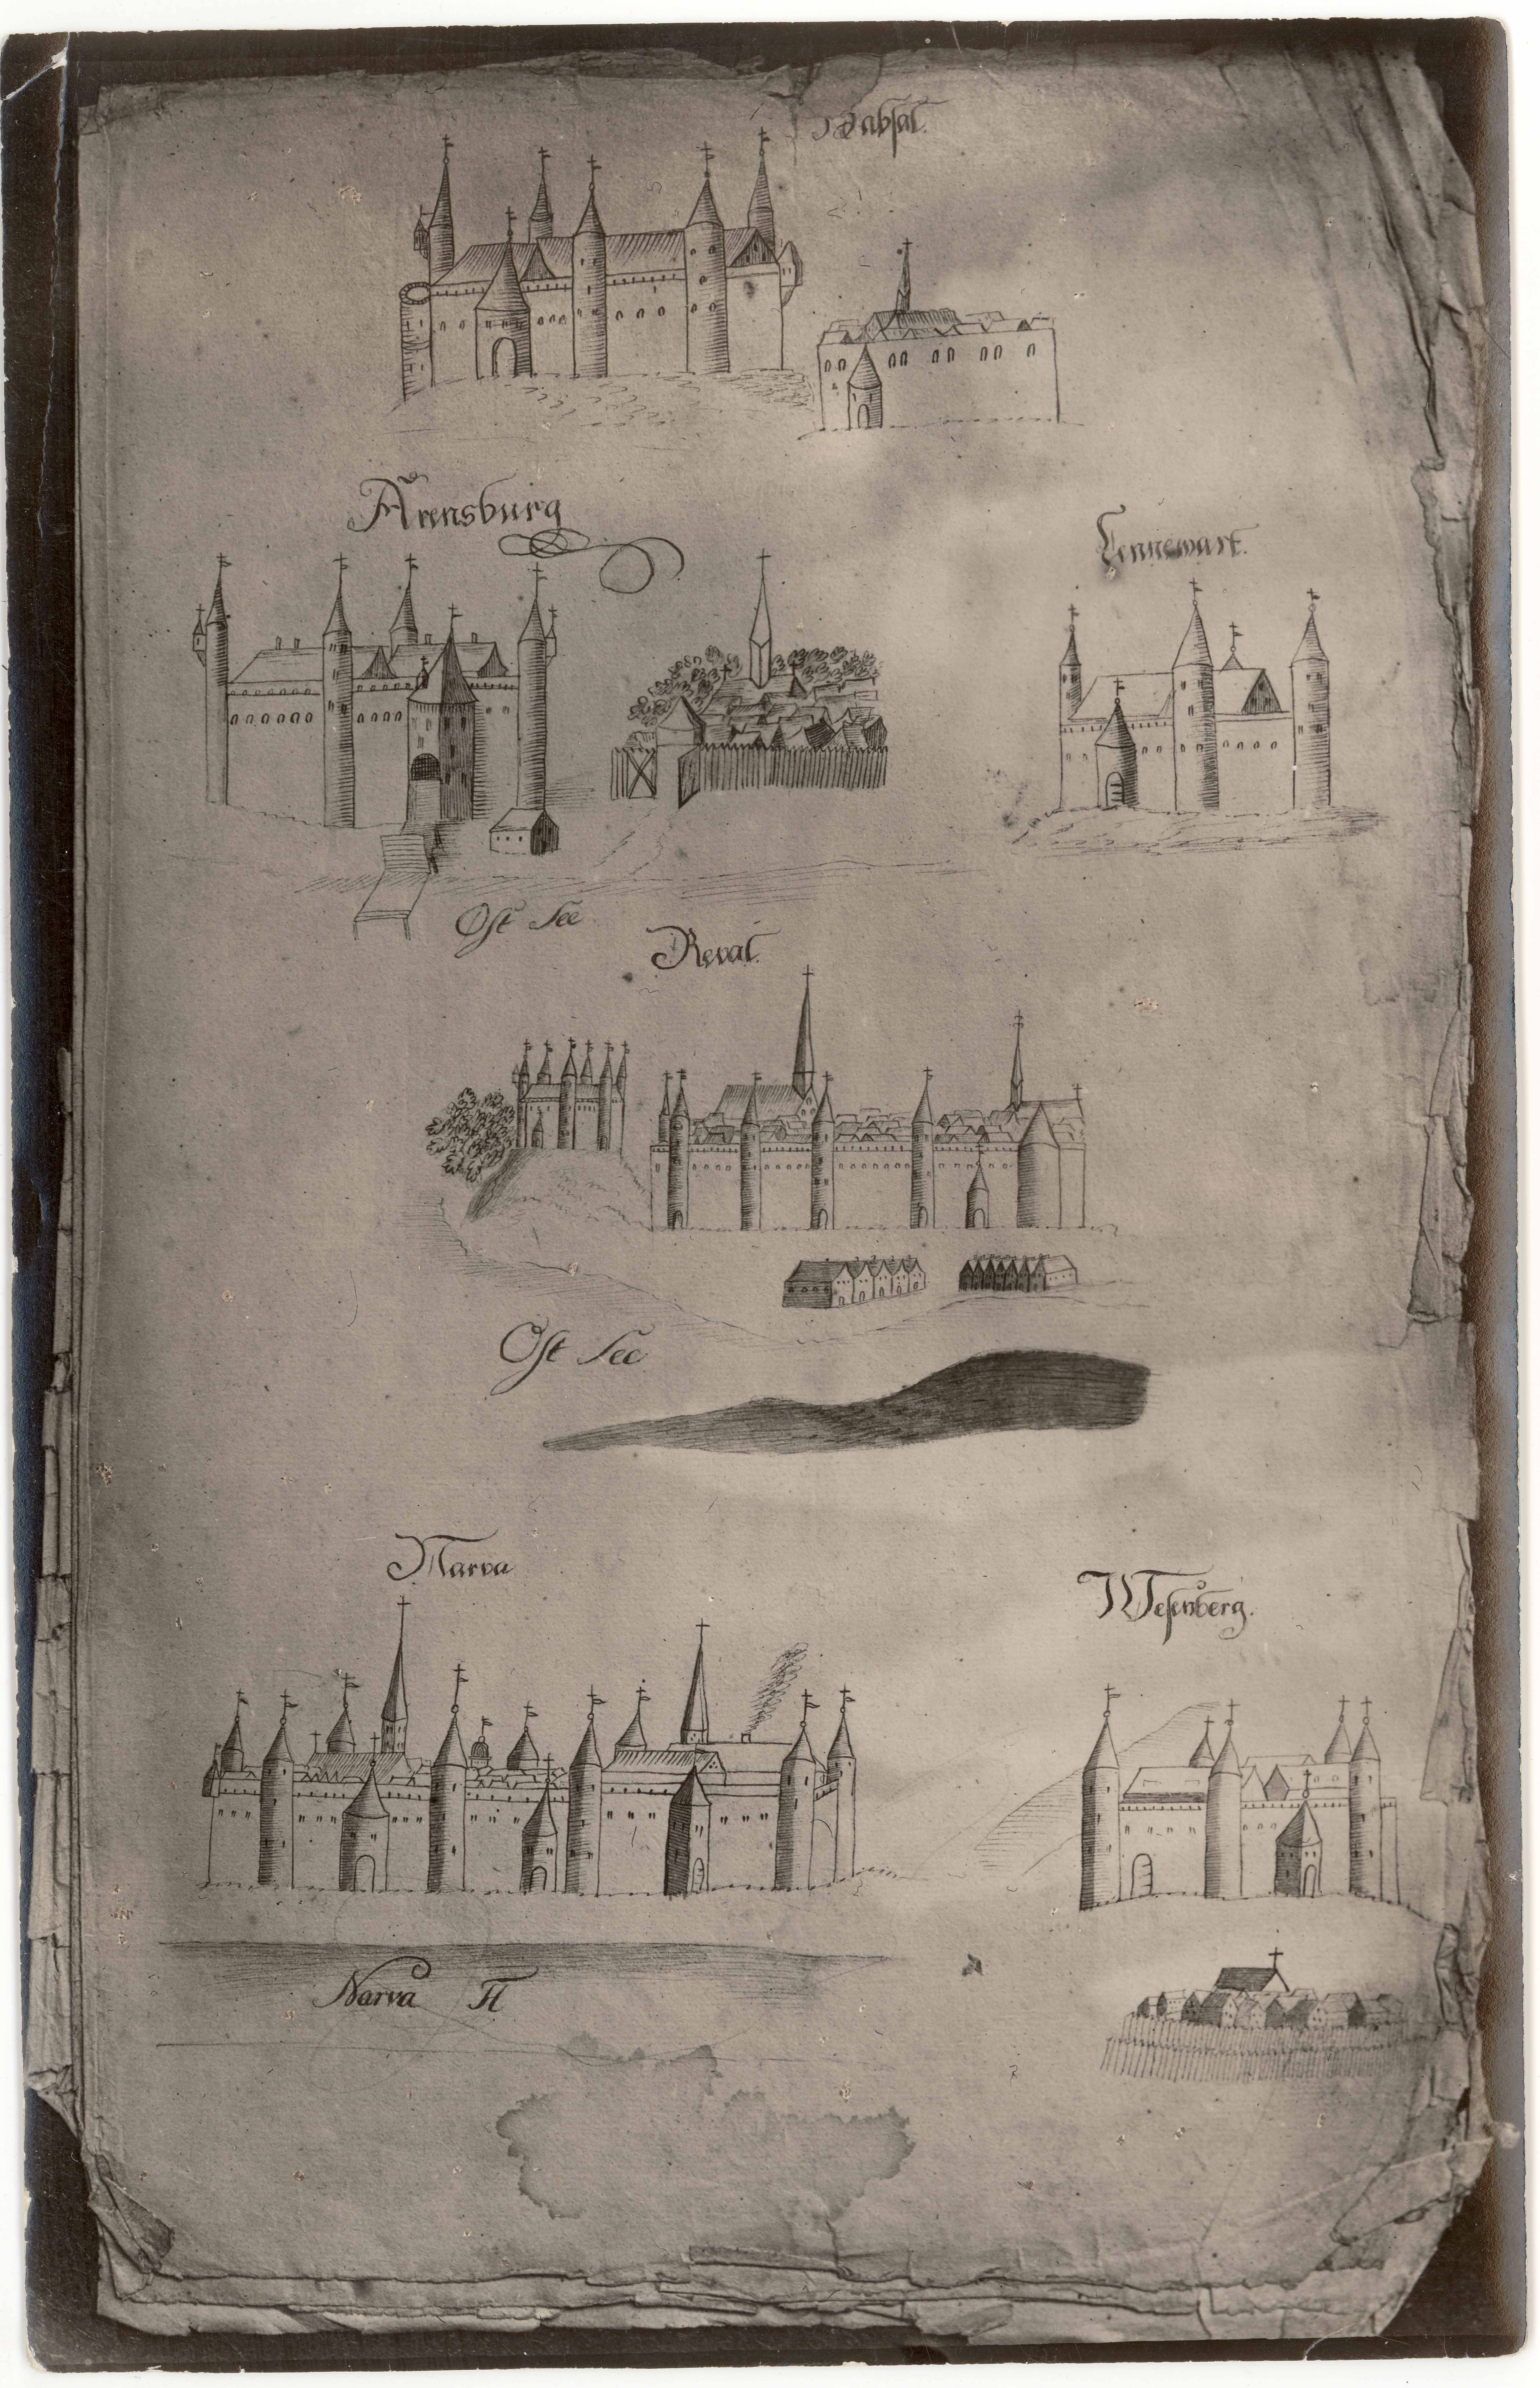 Habsal.
Arensburg
Lennewart.
Ost See
Reval.
Ost See
Narva
Wesenberg.
Narva Fl